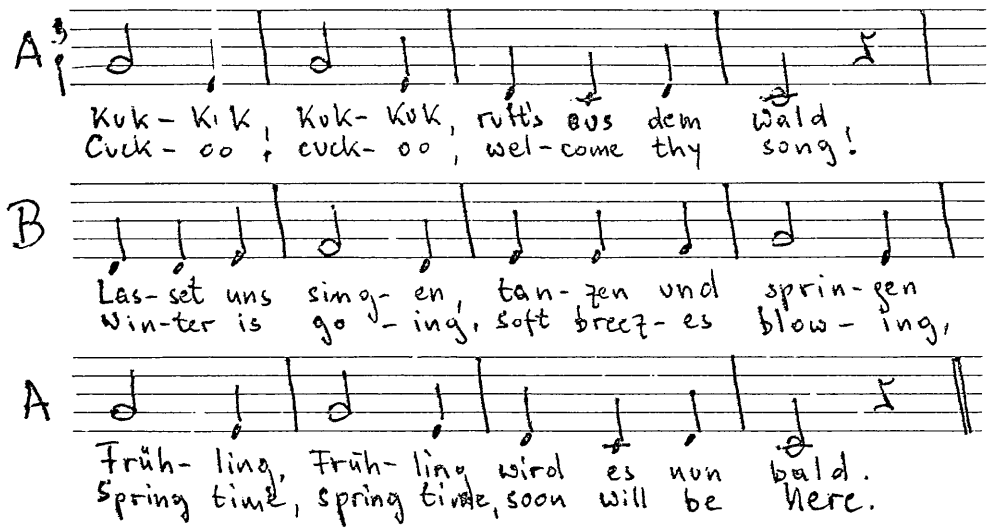 A 3
Kuk-Kuk, Kuk-Kuk, ruft's aus dem Wald
Cuck-oo! cuck-oo, wel-come thy song!
B
Las-set uns sing-en, tan-zen und sprin-gen
Win-ter is go-ing, soft breez-es blow-ing,
A
Früh-ling, Früh-ling wird es nun bald.
Spring time, spring time, soon will be here.